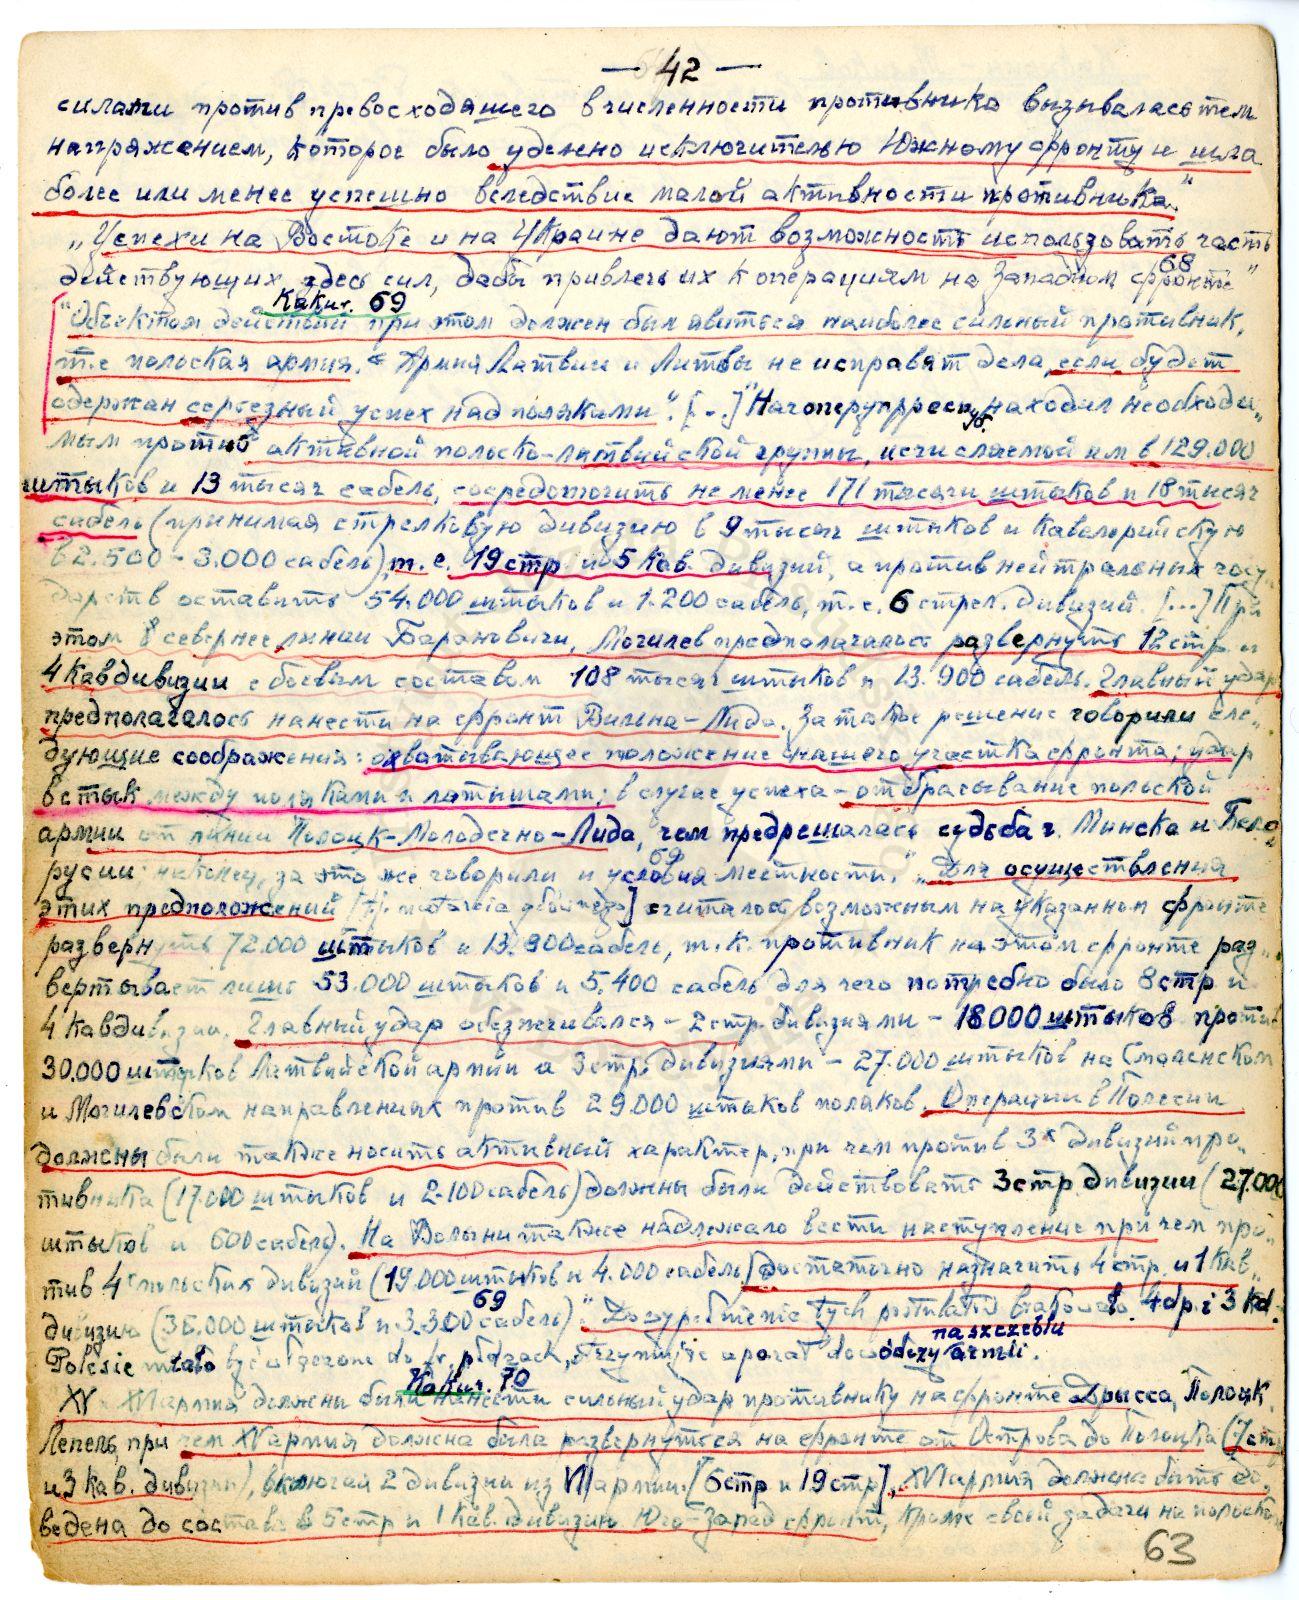 — 42 —
силами против превосходящего в численности противника вызывалась тем
напряжением, которое было уделено исключительно Южному фронту и шла
более или менее успешно вследствие малой активности противника."
„Успехи на Востоке и на Украине дают возможность использовать часть
действующих здесь сил, дабы привлечь их к операциям на Западном фронте" 68
Какур. 69
"Объектом действий при этом должен был явиться наиболее сильный противник,
т.е польская армия. Армия Латвии и Литвы не исправят дела, если будет
одержан серьезный успех над поляками". [...] "Начоперупр респуб. находил необходи„
мым против активной польско-латвийской группы, исчисляемой им в 129.000
штыков и 13 тысяч сабель, сосредоточить не менее 171 тысячи штыков и 18 тысяч
сабель (принимая стрелковую дивизию в 9 тысяч штыков и кавалерийскую
в 2.500 - 3.000 сабель), т. е. 19 стр. и 5 кав. дивизий, а против нейтральных госу„
дарств оставить 54.000 штыков и 1.200 сабель, т. е. 6 стрел. дивизий. [...] При
этом севернее линии Барановичи, Могилев предполагалось развернуть 12 стр. и
4 кавдивизии с боевым составом 108 тысяч штыков и 13.900 сабель. Главный удар
предполагалось нанести на фронт Вильна-Лида. За такое решение говорили сле„
дующие соображения: охватывающее положение нашего участка фронта; удар
в стык между поляками и латышами; в случае успеха - отбрасывание польской
армии от линии Полоцк-Молодечно-Лида, чем предрешалась судьба г. Минска и Бело„
русии наконец, за это же говорили и условия местности." 69 „Для осуществления
этих предположений [tj. natarcia głównego] считалось возможным на указанном фронте
развернуть 72.000 штыков и 13.900 сабель, т. к. противник на этом фронте раз„
вертывает лишь 53.000 штыков и 5.400 сабель для чего потребно было 8 стр и
4 кавдивизии. Главный удар обезпечивался - 2 стр. дивизиями - 18000 штыков против
30.000 штыков Латвийской армии и 3 стр. дивизиями - 27.000 штыков на Смоленском
и Могилевском направлениях против 29.000 штыков поляков. Операции в Полесии
должны были также носить активный характер, при чем против 3х дивизий про„
тивника (17.000 штыков и 2.100 сабель) должны были действовать 3 стр. дивизии (27.000
штыков и 600 сабель). На Волыни также надлежало вести наступление при чем про„
тив 4х польских дивизий (19.000 штыков и 4.000 сабель) достаточно назначить 4 стр. и 1 кав„
дивизию (36.000 штыков и 3.300 сабель)." 69 Do wypełnienia tych postulatów brakowało 4 dp. i 3 kd.
Polesie miało być otrzymując aparat dowódczy na szczeblu armii.
Какур. 70
XV и XVI армия должны были нанести сильный удар противнику на фронте Дрысса, Полоцк
Лепель, при чем XV армия должна была развернуться на фронте от Острова до Полоцка (7 стр
и 3 кав. дивизии), включая 2 дивизии из армии. [6 стр и 19 стр], XVI армия должна быть до„
ведена до состава в 5 стр и 1 кав. дивизию Юго-Запад фронт, кроме своей задачи на польском
63